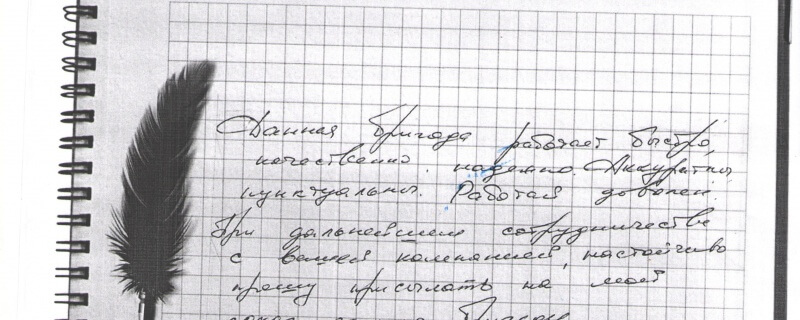 Данная бригада работает быстро,
качественно. надежно. Аккуратны
пунктуальны. Работой доволен.
При дальнейшем сотрудничестве
с вашей компанией, настойчиво
прошу присылать на мой